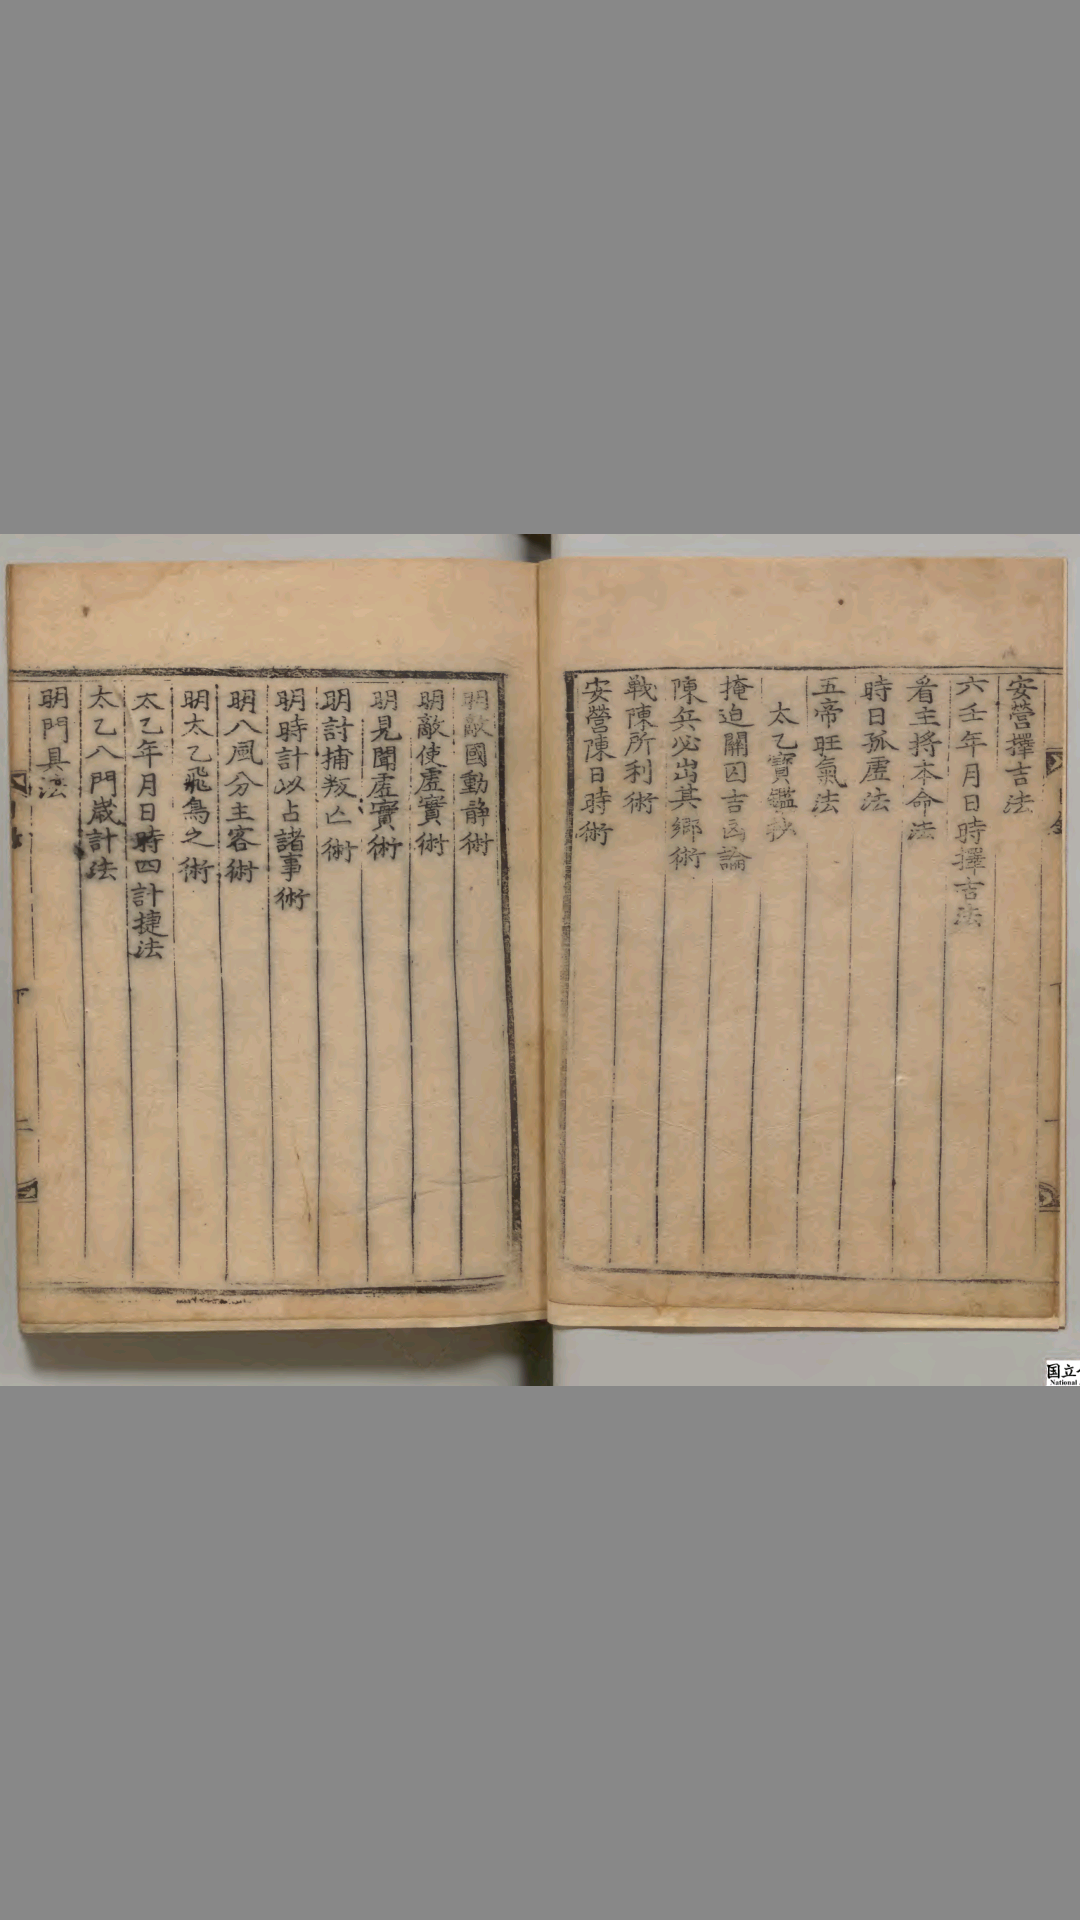 安營擇吉法
六壬年月日時擇吉法
看主將本命法
時日孤虛法
五帝旺氣法
太乙寶鑑抄
掩迫關囚吉凶論
陳兵必尚其鄉術
戦陳所利術
安營陳日時術
明敵國動静術
明敵使虛實術
明見聞虛實術
明討捕叛亾術
明時計以占諸事術
明八風分主客術
明太乙飛鳥之術
太乙年月日時四計捷法
太乙八門歲計法
明門具法
下
二
国立
National